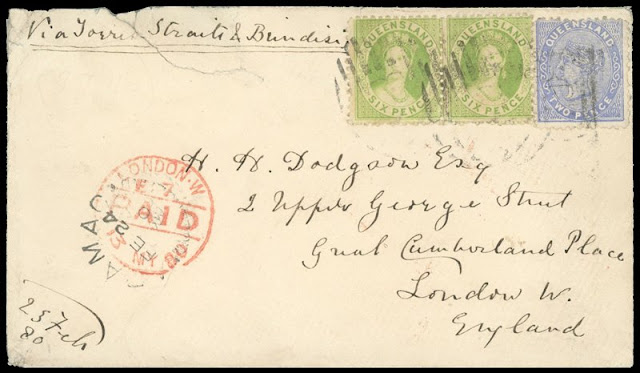 Via Torres Straits & Brindisi
QUEENSLAND
SIX PENCE
QUEENSLAND
SIX PENCE
QUEENSLAND
TWO PENCE
H. H. Dodgson Esq
2 Upper George Street
Great Cumberland Place
London W.
England
LONDON·W
PAID
MY 80
ARAMAC
FE 24
25 Feb
80